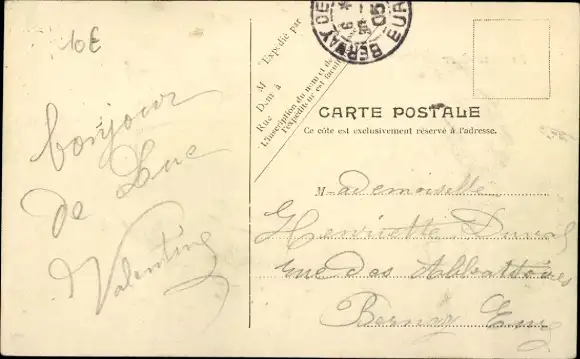 10€
bonjour
de Luc
Valentine
Expédié par
M
Dem^t à
Rue
L'inscription du nom et de
l'expéditeur est facultative
BERNAY DE L'EURE
05
CARTE POSTALE
Ce côté est exclusivement réservé à l'adresse.
Mademoiselle
Henriette Duval
rue des Abbattoires
Bernay Eure